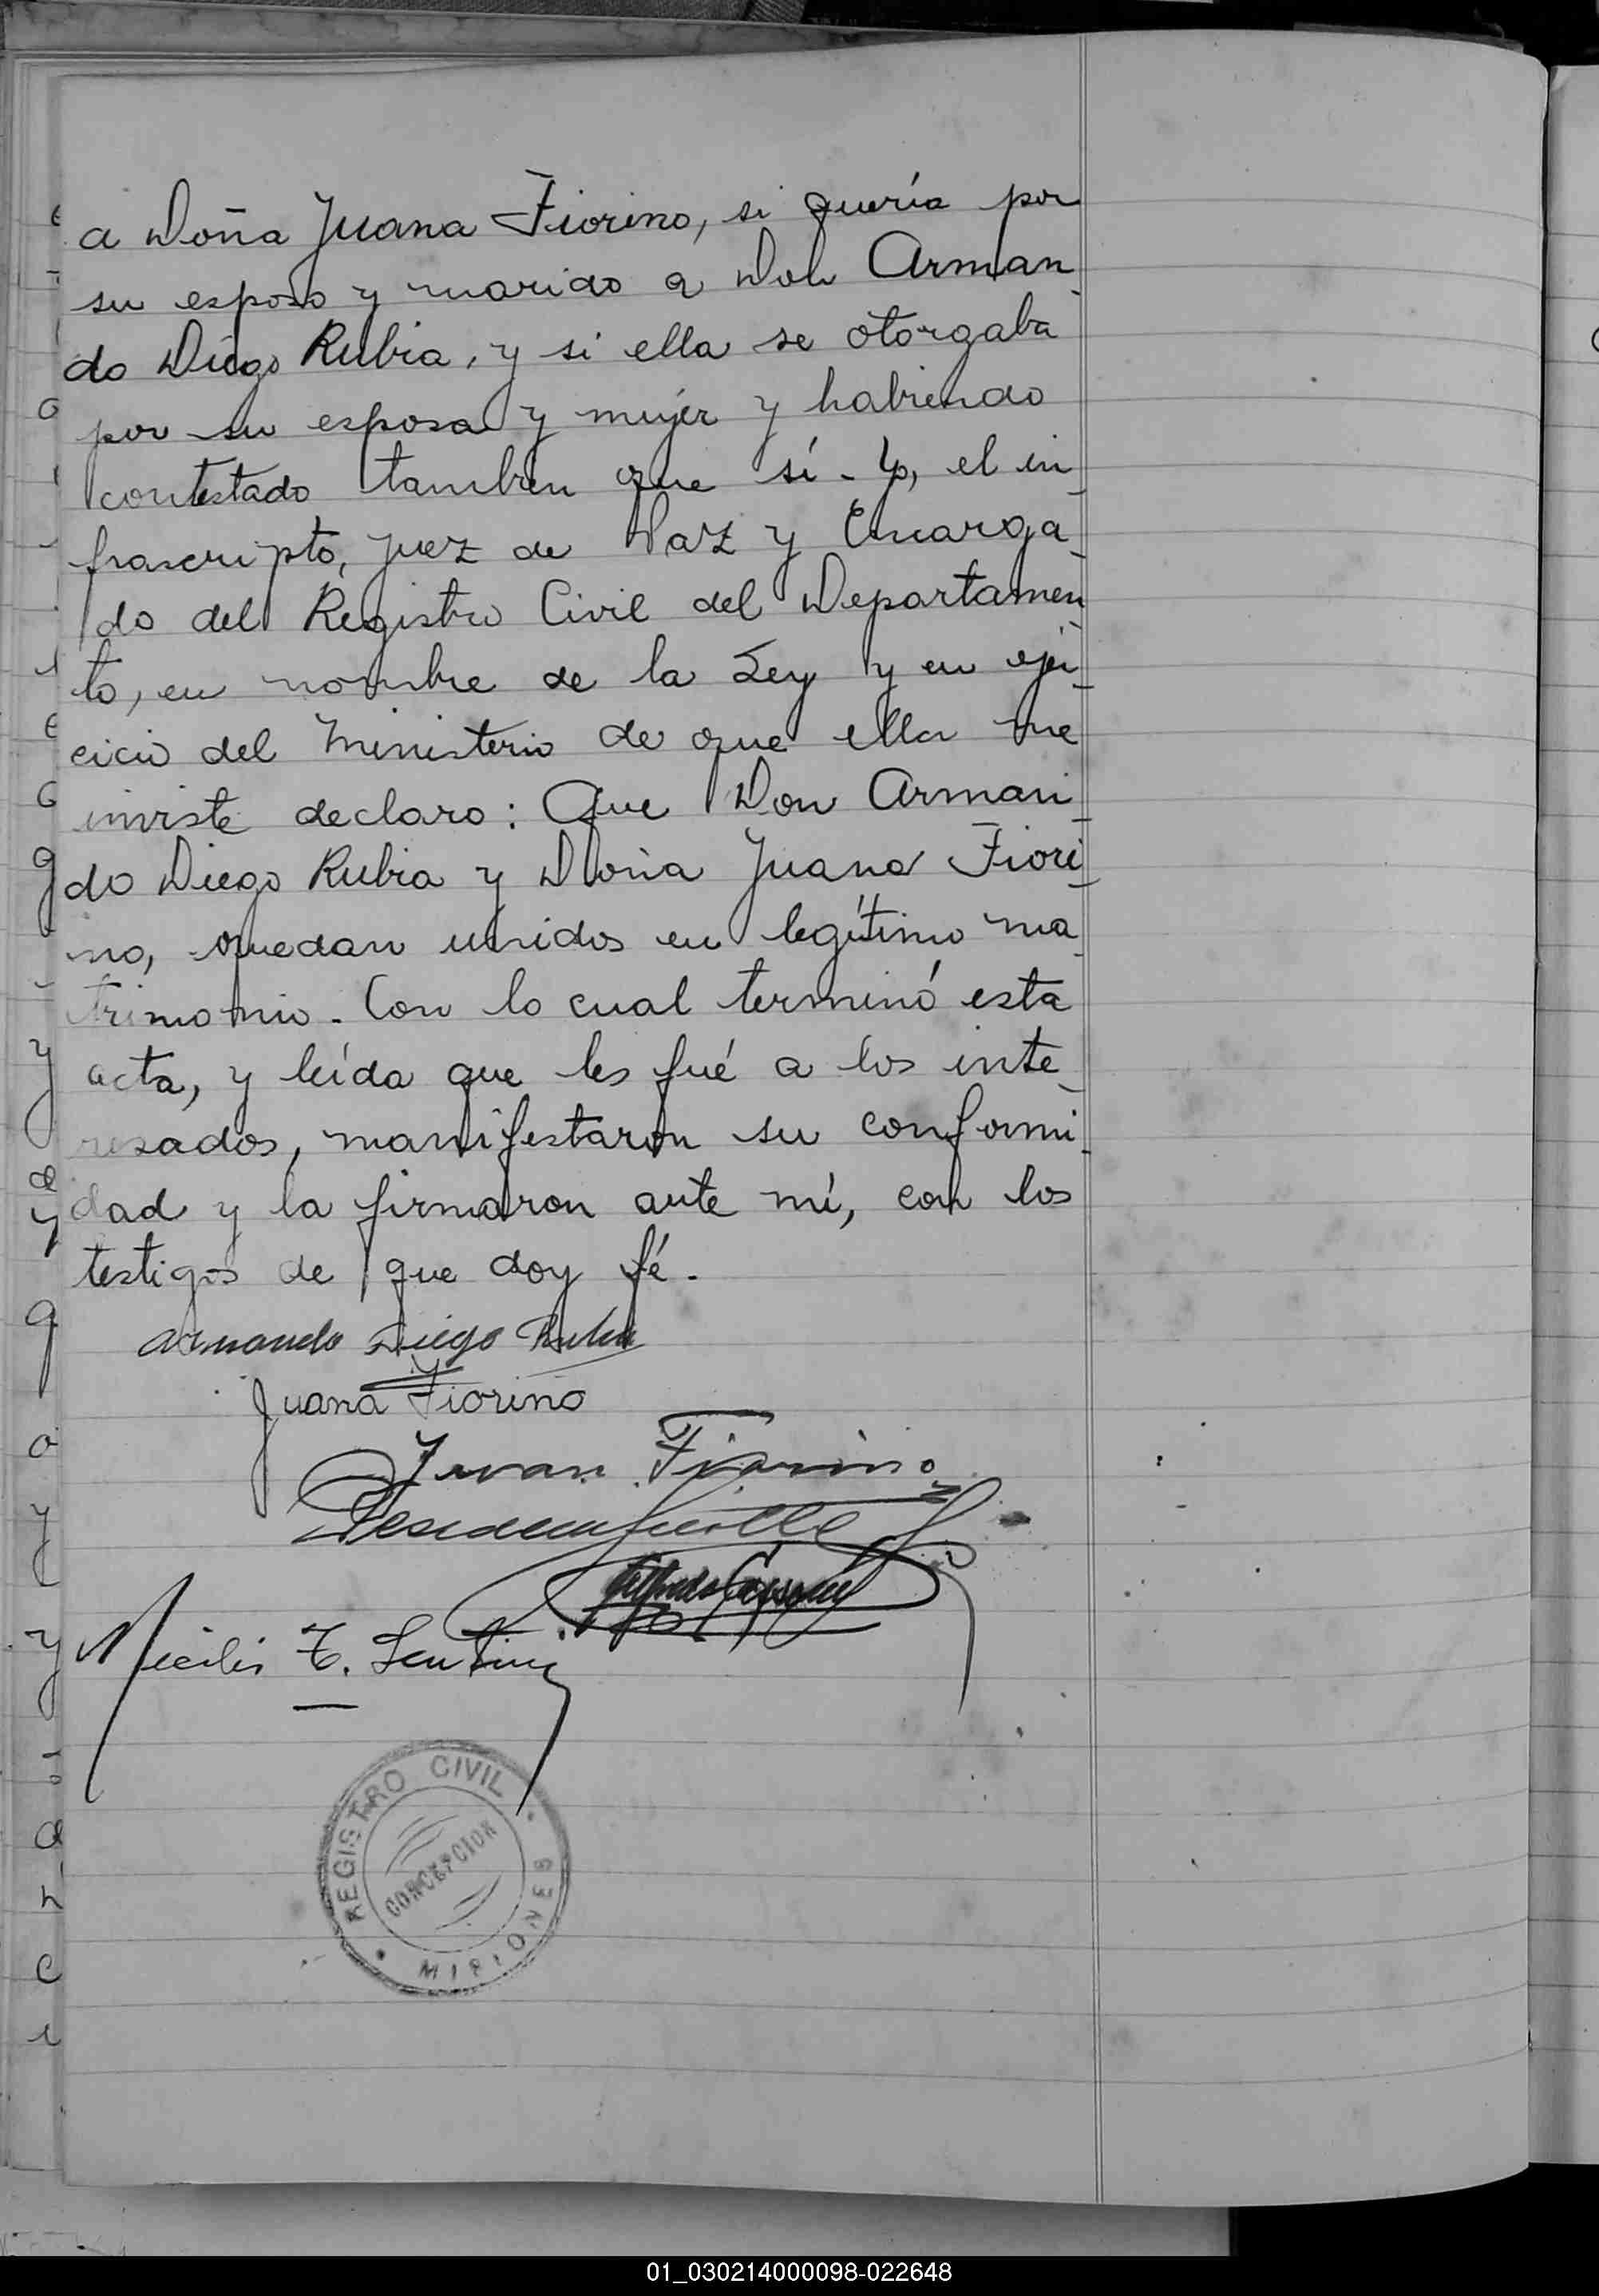 a Doña Juana Fiorino, si quería por
su esposo y marido a Don Arman_
do Diego Rubia, y si ella se otorgaba
por su esposa y mujer y habiendo
contestado tambien que sí - Yo, el in_
frascripto, Juez de Paz y Encarga_
do del Registro Civil del Departamen_
to, en nombre de la Ley y en ejer_
cicio del Ministerio de que ella me
inviste declaro: Que Don Arman_
do Diego Rubia y Doña Juana Fiori_
no, quedan unidos en legítimo ma_
trimonio. Con lo cual terminó esta
acta, y leída que les fué a los inte_
resados, manifestaron su conformi_
dad y la firmaron ante mí, con los
testigos de que doy fé.
Armando Diego Rubia
Juana Fiorino
Juan Fiorino
REGISTRO CIVIL
CONCEPCION
MISIONES
01_030214000098-022648